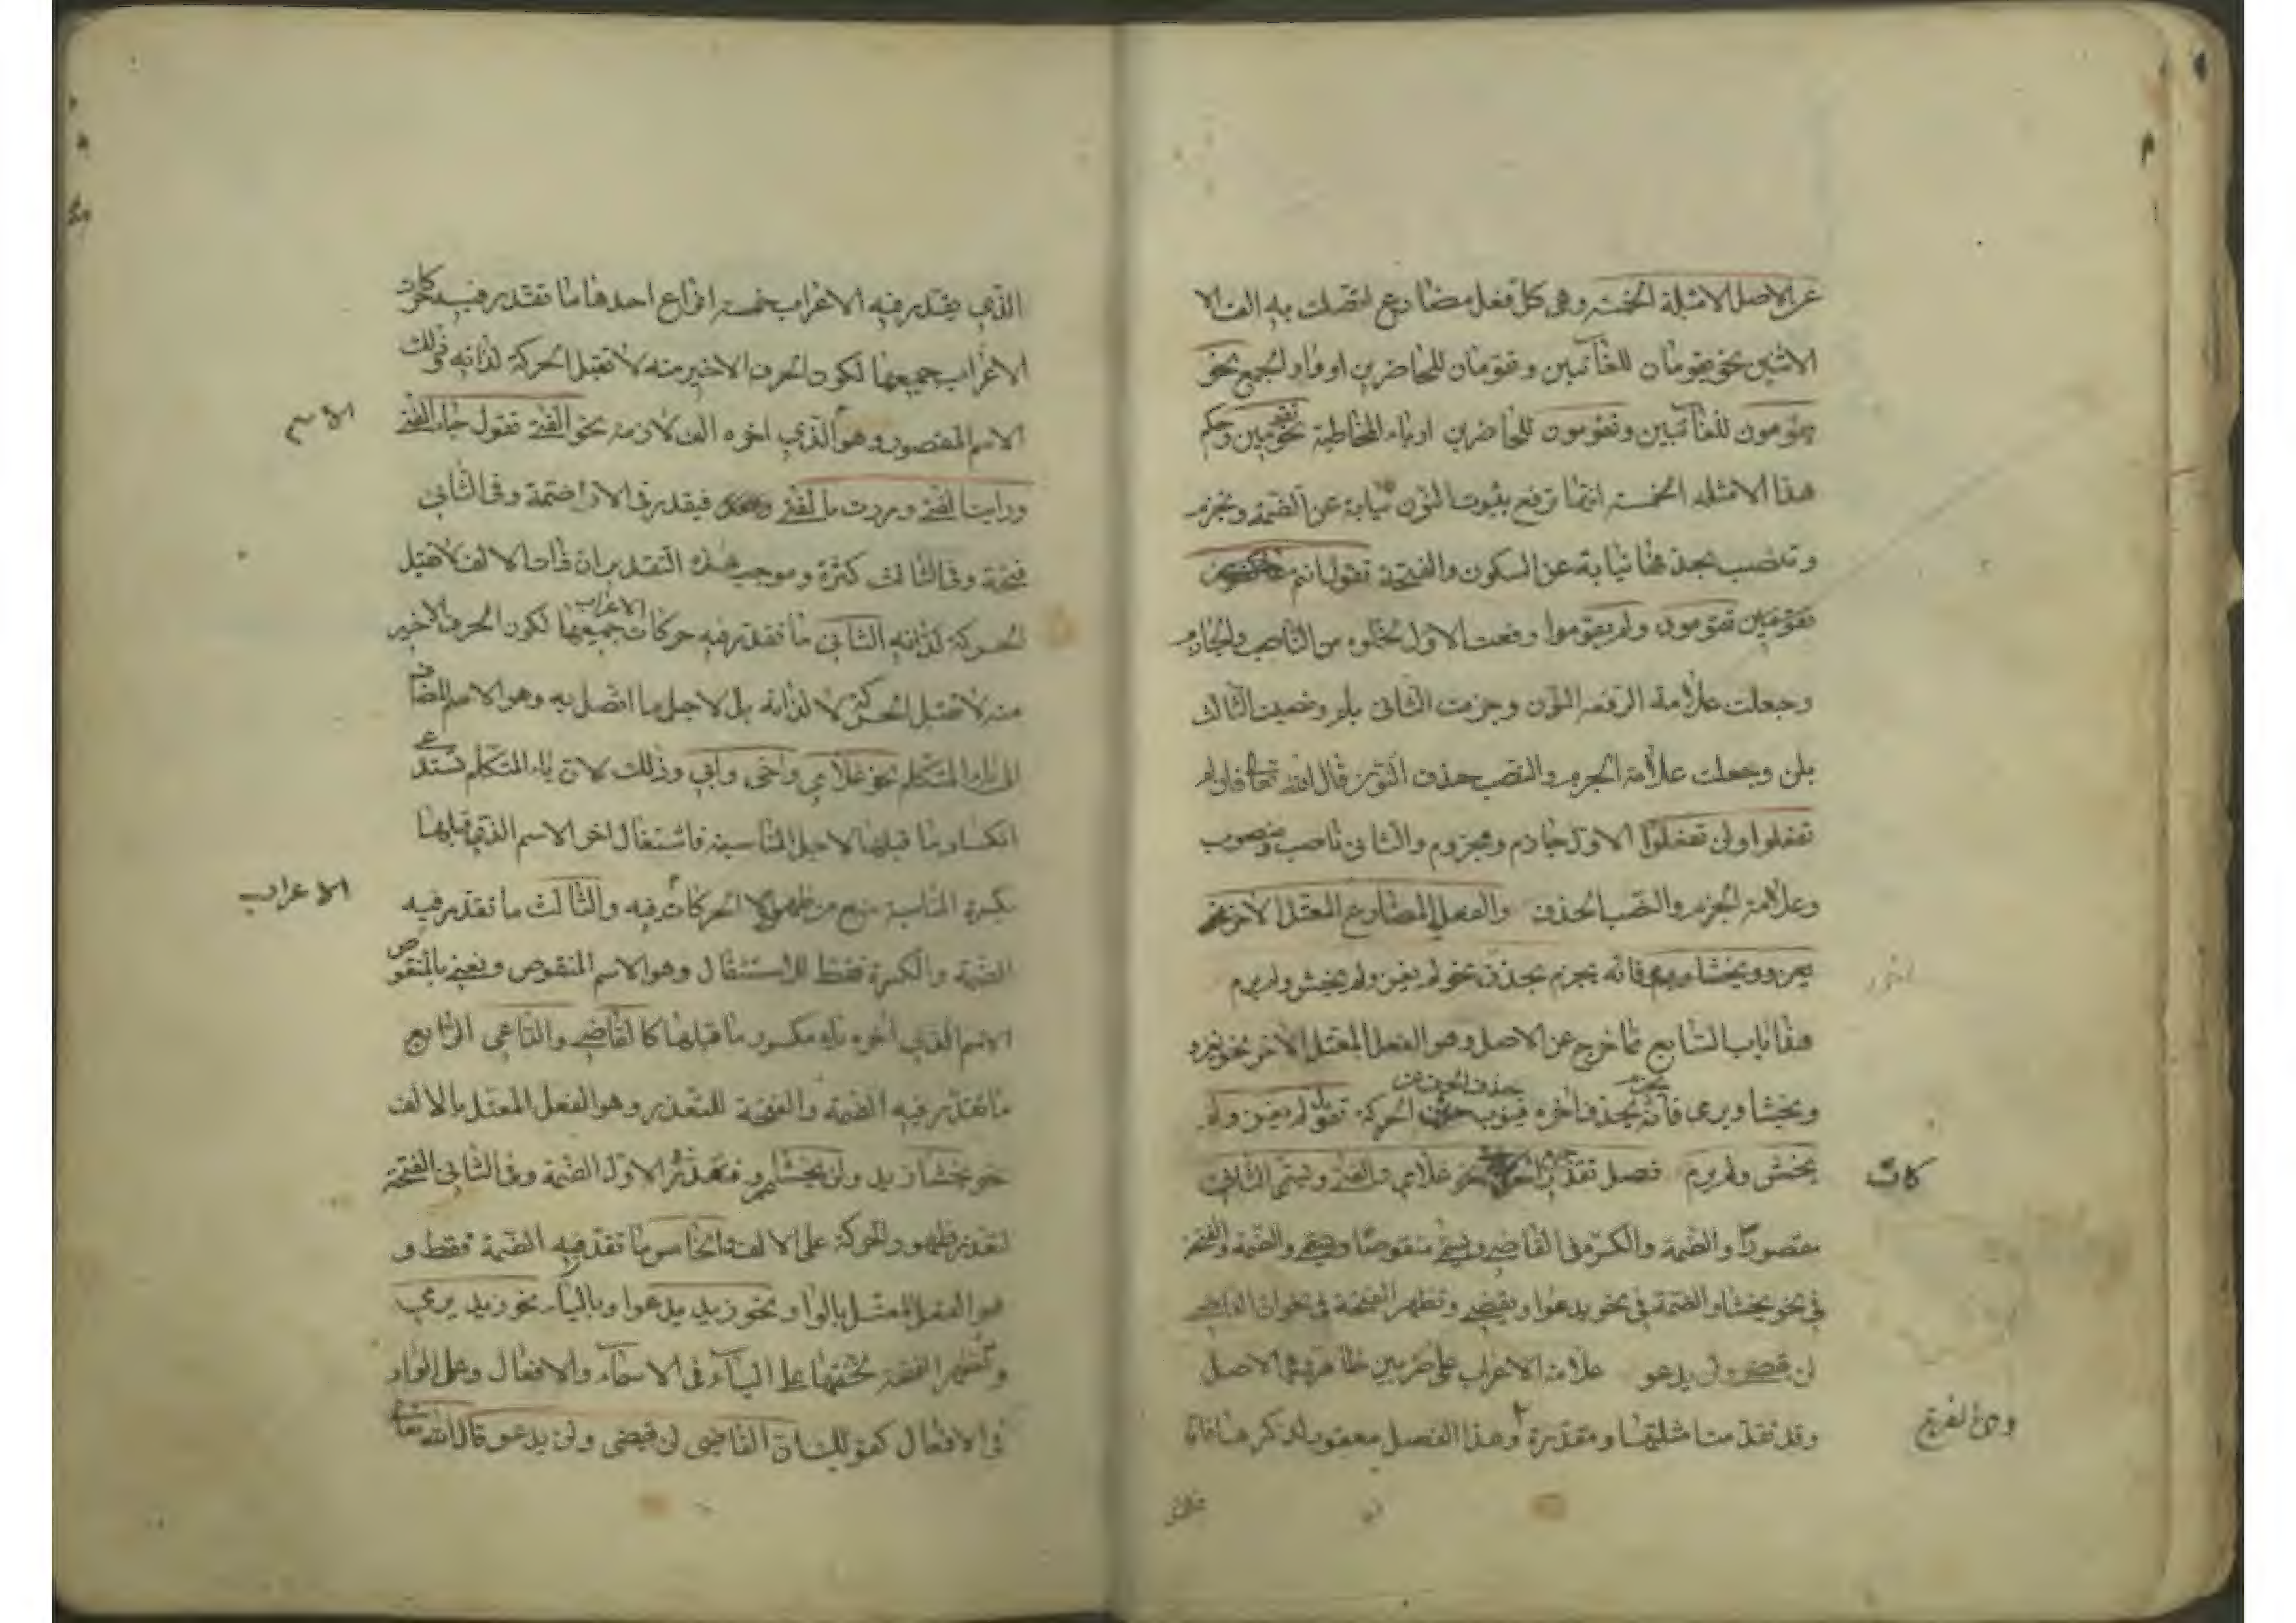 عن الاصل الامثلة الخمسة وهى كل فعل مضارع اتصلت به الف الا
الاثنين نحو يقومان للغائبين وتقومان للحاضرين او واو الجمع نحو
يقومون للغائبين وتقومون للحاضرين او ياء المخاطبة نحو تقومين وحكم
هذا الامثلة الخمسة انها ترفع بثبوت النون نيابة عن الضمة وتجزم
وتنصب بحذفها نيابة عن السكون والفتحة تقول انتم
تقومين تقومون ولم يقوموا رفعت الاول لخلوه من الناصب والجازم
وجعلت علامة الرفعه النون وجزمت الثانى بلم ونصبت الثالث
بلن وجعلت علامة الجزم والنصب حذف النون قال الله تعالى فان لم
تفعلوا ولن تفعلوا الاول جازم ومجزوم والثانى ناصب ومنصوب
وعلامة الجزم والنصب الحذف والفعل المضارع المعتل الاخر
يغزو ويخشا ويرمى فانه يجزم بحذف نحو لم يغز ولم يخش ولم يرم
هذا باب السابع مما خرج عن الاصل وهو الفعل المعتل الاخر نحو يغزو
حذف الحرف عن
ويخشا ويرمى فانه يجزم بحذف اخره فينوب الحركة تقول لم يغز ولم
يخش ولم يرم فصل تقدر نحو غلامي والفتى ويسمى الثانى
كات
مقصورا والضمة والكسرة فى القاضي ويسمى منقوصا والضمة والفتحة
فى نحو يخشا والضمة فى نحو يدعوا ويقضي وتظهر الفتحة فى نحو ان القاضي
لن يقضى ولن يدعو علامة الاعراب على ضربين ظاهرة وهى الاصل
وقد تقدمت امثلتها ومقدرة وهذا الفصل معقود لذكرها فان
وهى الفرع
الذي يقدر فيه الاعراب خمسة انواع احدها ما تقدر فيه حركات
الاعراب جميعها لكون الحرف الاخير منه لا تقبل الحركة لذاته وذلك
الاسم المقصور وهو الذي اخره الف لازمة نحو الفتى تقول جاء الفتى
الاسم
ورايت الفتى ومررت بالفتى فيقدر فى الاول ضمة وفى الثانى
فتحة وفى الثالث كسرة وموجب هذه التقدير ان ذات الالف لا تقبل
الحركة لذاته الثانى ما تقدر فيه حركات الاعراب جميعها لكون الحرف الاخير
منه لا تقبل الحركة لا لذاته بل لاجل ما اتصل به وهو الاسم المضاف
الى ياء المتكلم نحو غلامي واخى وابي وذلك لان ياء المتكلم تستدعى
انكسار ما قبلها لاجل المناسبة فاشتغال اخر الاسم الذي قبلها
بكسرة المناسبة منع من ظهور الحركات فيه والثالث ما تقدر فيه
الاعراب
الضمة والكسرة فقط للاستثقال وهو الاسم المنقوص ونعنى بالمنقوص
الاسم الذي اخره ياء مكسور ما قبلها كالقاضي والداعى الرابع
ما تقدر فيه الضمة والفتحة للتعذر وهو الفعل المعتل بالالف
نحو يخشا زيد ولن يخشا عمرو فتقدر الاول الضمة وفى الثانى الفتحة
لتعذر ظهور الحركة على الالف الخامس ما تقدر فيه الضمة فقط و
هو الفعل المعتل بالواو نحو زيد يدعوا وبالياء نحو زيد يرمي
وتظهر الفتحة لخفتها على الياء فى الاسماء والافعال وعلى الواو
فى الافعال كقولك ان القاضى لن يقضى ولن يدعو قال الله تعالى